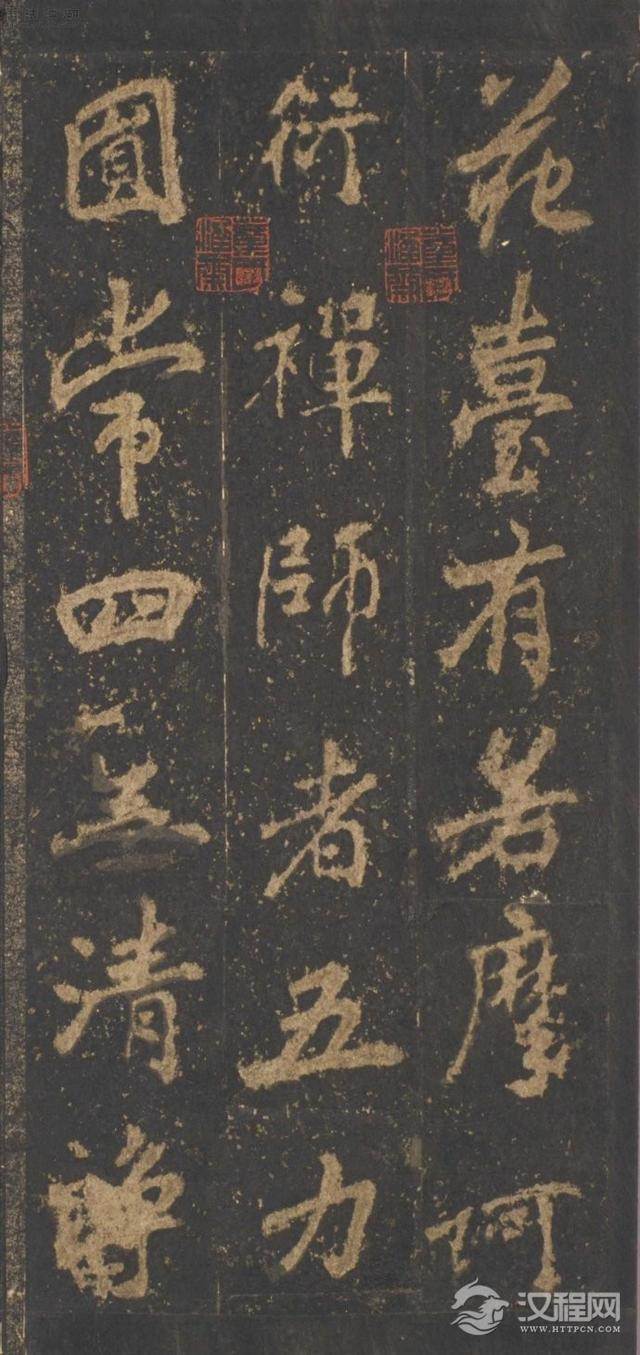 花臺有若摩訶
衍禪師者五力
圓常四無清淨
汉程网
WWW.HTTPCN.COM